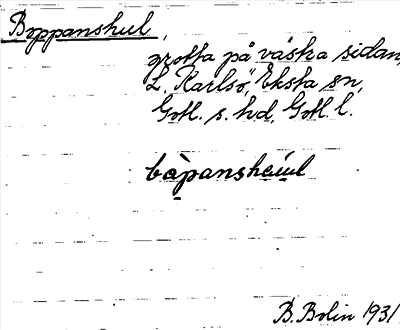 Boppanshul,
grotta på västra sidan,
L. Karlsö, Eksta sn,
Gotl. s. hd, Gotl. l.
bàpanshéu̯l
B. Bolin 1931